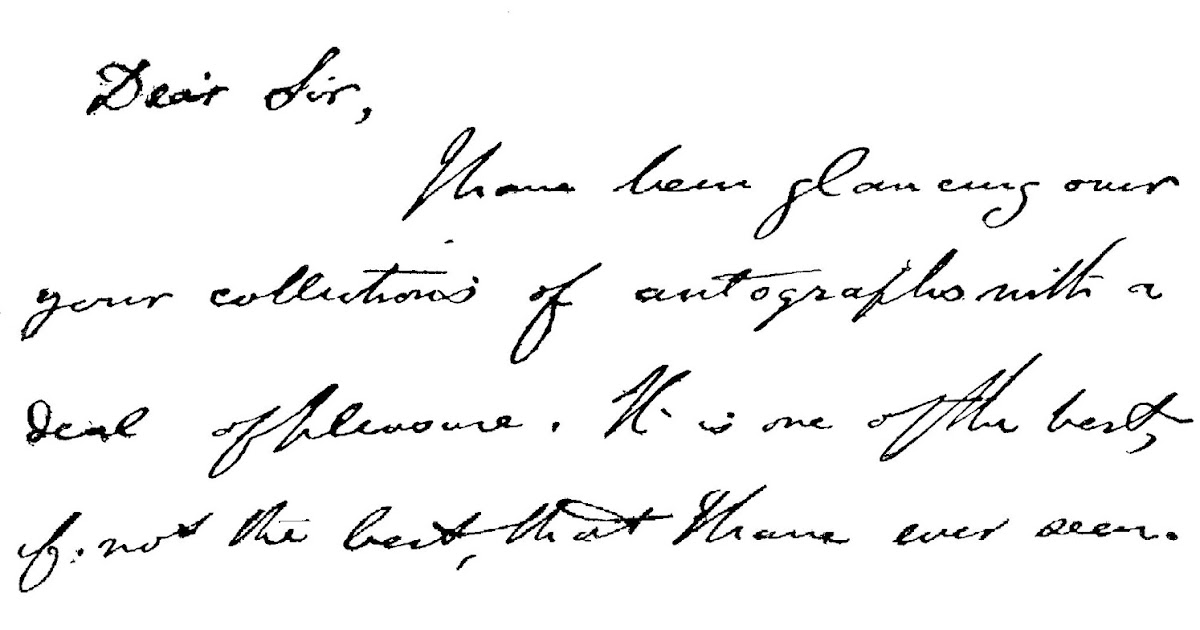 Dear Sir,
I have been glancing over
your collections of autographs with a
deal of pleasure. It is one of the best,
if not the best, that I have ever seen.